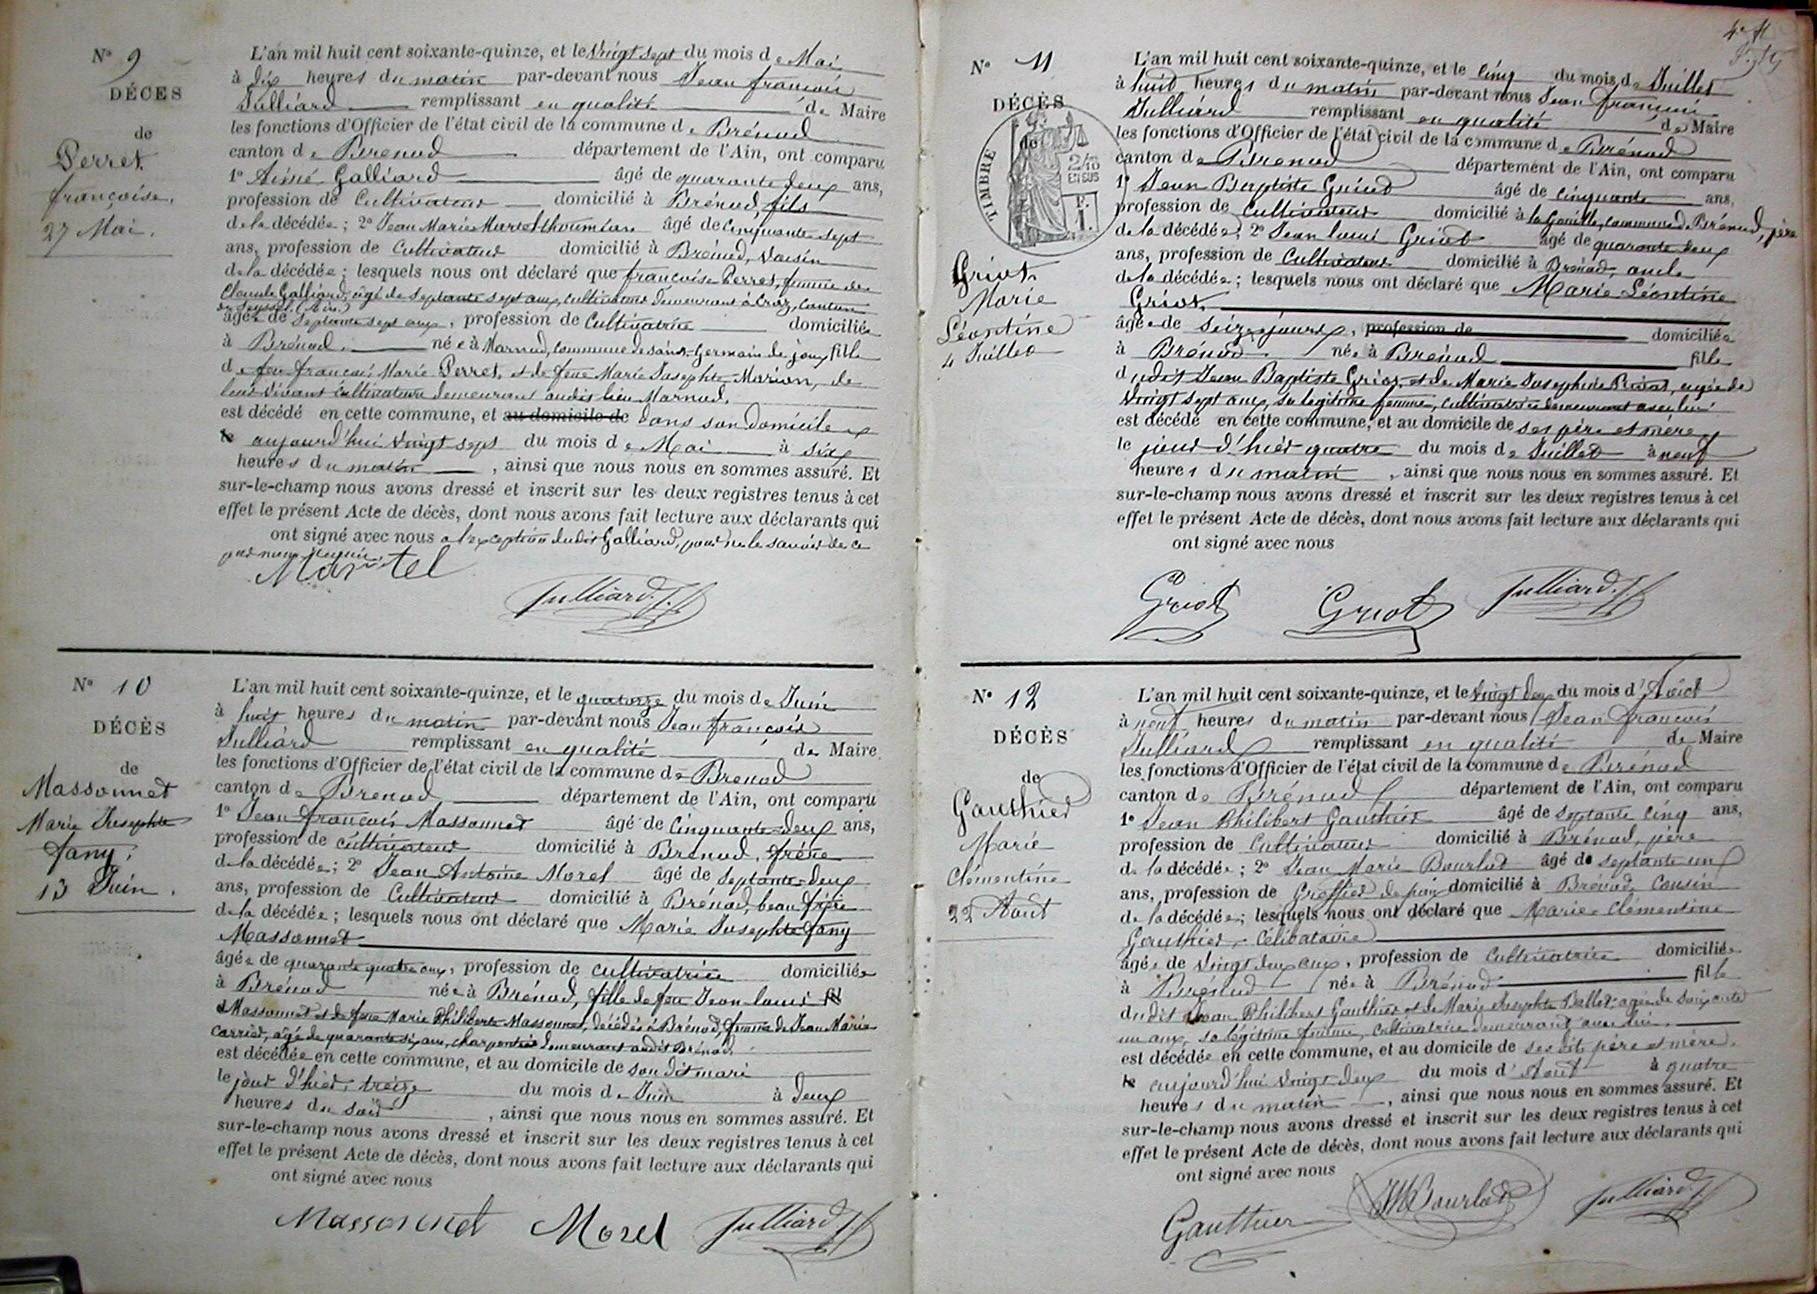 N° 9
DÉCES
de
Perret
françoise.
27 Mai.
L'an mil huit cent soixante-quinze, et le Vingt sept du mois de Mai
à dix heures du matin par-devant nous Jean françois
Julliard remplissant en qualité de Maire
les fonctions d'Officier de l'état civil de la commune de Brénod
canton de Brenod département de l'Ain, ont comparu
1° Aimé Galliard âgé de quarante deux ans,
profession de Cultivateur domicilié à Brénod, fils
de la décédée; 2° Jean Marie Martel âgé de Cinquante sept
ans, profession de Cultivateur domicilié à Brénod, Voisin
de la décédée; lesquels nous ont déclaré que françoise Perret, femme de
Claude Galliard, âgé de septante sept ans, cultivateur demeurant à Craz, canton
de Seyssel (Ain)
âgée de septante sept ans, profession de Cultivatrice domiciliée
à Brénod. née à Marnod, commune de Saint-Germain de joux fille
de feu françois Marie Perret, et de feue Marie Josephte Marion, de
leur vivant cultivateurs demeurant audit lieu Marnod.
est décédé en cette commune, et au domicile de dans son domicile
le aujourd'hui vingt sept du mois de Mai à six
heures du matin, ainsi que nous nous en sommes assuré. Et
sur-le-champ nous avons dressé et inscrit sur les deux registres tenus à cet
effet le présent Acte de décès, dont nous avons fait lecture aux déclarants qui
ont signé avec nous à l'exception dudit Galliard, pour ne le savoir de ce
par nous requis.
Martel
Julliard J. f.
N° 10
DÉCÈS
de
Massonnet
Marie Josephte
fany.
13 Juin.
L'an mil huit cent soixante-quinze, et le quatorze du mois de Juin
à huit heures du matin par-devant nous Jean françois
Julliard remplissant en qualité de Maire
les fonctions d'Officier de l'état civil de la commune de Brenod
canton de Brenod département de l'Ain, ont comparu
1° Jean françois Massonnet âgé de Cinquante-deux ans,
profession de cultivateur domicilié à Brénod, frère
de la décédée; 2° Jean Antoine Morel âgé de septante-deux
ans, profession de Cultivateur domicilié à Brénod, beau frère
de la décédée; lesquels nous ont déclaré que Marie Josephte fany
Massonnet
âgée de quarante quatre ans, profession de cultivatrice domiciliée
à Brénod née à Brénod, fille de feu Jean-louis fil
d Massonnet et de feue Marie Philiberte Massonnet, décédés à Brénod, femme de Jean Marie
Carrier, âgé de quarante six ans, charpentier demeurant audit Brénod.
est décédée en cette commune, et au domicile de son dit mari
le jour d'hier, treize du mois de Juin à deux
heures du soir, ainsi que nous nous en sommes assuré. Et
sur-le-champ nous avons dressé et inscrit sur les deux registres tenus à cet
effet le présent Acte de décès, dont nous avons fait lecture aux déclarants qui
ont signé avec nous
Massonnet Morel Julliard J. f.
N° 11
DÉCÈS
de
TIMBRE
2/10 EN SUS
F. 1
Griot
Marie
Léontine
4 Juillet
L'an mil huit cent soixante-quinze, et le cinq du mois de Juillet
à huit heures du matin par-devant nous Jean françois
Julliard remplissant en qualité de Maire
les fonctions d'Officier de l'état civil de la commune de Brénod
canton de Brenod département de l'Ain, ont comparu
1° Jean Baptiste Griot âgé de Cinquante ans,
profession de Cultivateur domicilié à la Gouille, commune de Brénod, père
de la décédée; 2° Jean louis Griot âgé de quarante deux
ans, profession de Cultivateur domicilié à Brénod, oncle
de la décédée; lesquels nous ont déclaré que Marie Léontine
Griot
âgée de seize jours, profession de domiciliée
à Brénod née à Brénod fille
dudit Jean Baptiste Griot et de Marie Josephine agée de
vingt sept ans, sa légitime femme, cultivatrice demeurant avec lui
est décédé en cette commune, et au domicile de ses père et mère
le jour d'hier quatre du mois de Juillet à neuf
heures du matin, ainsi que nous nous en sommes assuré. Et
sur-le-champ nous avons dressé et inscrit sur les deux registres tenus à cet
effet le présent Acte de décès, dont nous avons fait lecture aux déclarants qui
ont signé avec nous
Griot Griot Julliard J. f.
N° 12
DÉCÈS
de
Gauthier
Marie
Clémentine
22 Août
L'an mil huit cent soixante-quinze, et le vingt deux du mois d'Août
à neuf heures du matin par-devant nous Jean françois
Julliard remplissant en qualité de Maire
les fonctions d'Officier de l'état civil de la commune de Brénod
canton de Brénod département de l'Ain, ont comparu
1° Jean Philibert Gauthier âgé de septante cinq ans,
profession de Cultivateur domicilié à Brénod, père
de la décédée; 2° Jean Marie Bourlod âgé de septante un
ans, profession de Greffier de paix domicilié à Brénod, Cousin
de la décédée; lesquels nous ont déclaré que Marie Clémentine
Gauthier, Célibataire
âgée de vingt deux ans, profession de Cultivatrice domiciliée
à Brénod née à Brénod fille
dudit Jean Philibert Gauthier et de Marie Josephte Ballet agée de soixante
un ans, sa légitime femme, Cultivatrice demeurant avec lui.
est décédée en cette commune, et au domicile de ses dits père et mère.
le aujourd'hui vingt deux du mois d'Août à quatre
heures du matin, ainsi que nous nous en sommes assuré. Et
sur-le-champ nous avons dressé et inscrit sur les deux registres tenus à cet
effet le présent Acte de décès, dont nous avons fait lecture aux déclarants qui
ont signé avec nous
Gauthier JM Bourlod Julliard J. f.